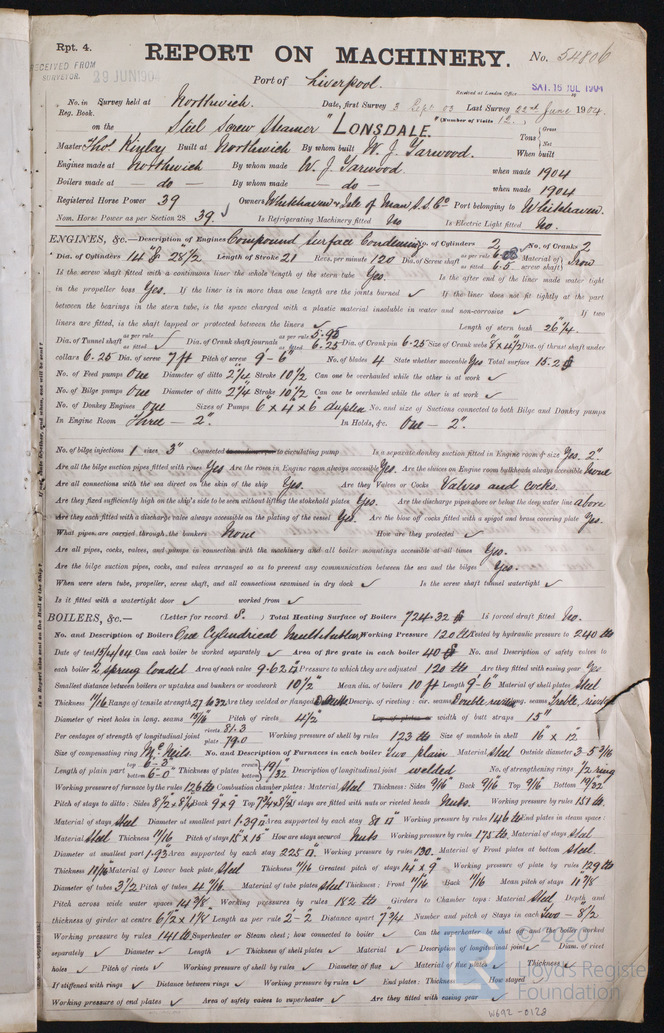 Rpt. 4.
REPORT ON MACHINERY.
No. 54806
RECEIVED FROM SURVEYOR. 29 JUN 1904
Port of Liverpool.
Received at London Office SAT. 16 JUL 1904
No. in Reg. Book. Survey held at Northwich. Date, first Survey 3 Sept 03 Last Survey 22nd June 1904.
on the Steel Screw Steamer "LONSDALE." (Number of Visits 12.)
Tons Gross Net
Master Thos. Built at Northwich By whom built W. J. Yarwood. When built
Engines made at Northwich By whom made W. J. Yarwood when made 1904
Boilers made at — do — By whom made — do — when made 1904
Registered Horse Power 39 Owners Whitehaven & Isle of Man S.S. Co Port belonging to Whitehaven.
Nom. Horse Power as per Section 28 39. Is Refrigerating Machinery fitted No Is Electric Light fitted No.
ENGINES, &c.—Description of Engines Compound Surface Condensing No. of Cylinders 2 No. of Cranks 2
Dia. of Cylinders 14 & 28 1/2 Length of Stroke 21 Revs. per minute 120 Dia. of Screw shaft as per rule as fitted 6.5 Material of screw shaft Iron
Is the screw shaft fitted with a continuous liner the whole length of the stern tube Yes. Is the after end of the liner made water tight
in the propeller boss Yes. If the liner is in more than one length are the joints burned ✓ If the liner does not fit tightly at the part
between the bearings in the stern tube, is the space charged with a plastic material insoluble in water and non-corrosive ✓ If two
liners are fitted, is the shaft lapped or protected between the liners ✓ Length of stern bush 26 1/4.
Dia. of Tunnel shaft as per rule as fitted ✓ Dia. of Crank shaft journals as per rule 5.95 as fitted 6.25 Dia. of Crank pin 6.25 Size of Crank webs 8 x 4 1/2 Dia. of thrust shaft under
collars 6.25 Dia. of screw 7 ft Pitch of screw 9'-6" No. of blades 4 State whether moveable Yes Total surface 15.2
No. of Feed pumps One Diameter of ditto 2 1/4 Stroke 10 1/2 Can one be overhauled while the other is at work ✓
No. of Bilge pumps One Diameter of ditto 2 1/4 Stroke 10 1/2 Can one be overhauled while the other is at work ✓
No. of Donkey Engines One Sizes of Pumps 6" x 4 x 6" duplex No. and size of Suctions connected to both Bilge and Donkey pumps
In Engine Room Three — 2". In Holds, &c. One — 2".
No. of bilge injections 1 sizes 3" Connected to circulating pump Is a separate donkey suction fitted in Engine room & size Yes. 2"
Are all the bilge suction pipes fitted with roses Yes Are the roses in Engine room always accessible Yes. Are the sluices on Engine room bulkheads always accessible None
Are all connections with the sea direct on the skin of the ship Yes. Are they Valves or Cocks Valves and cocks.
Are they fixed sufficiently high on the ship's side to be seen without lifting the stokehold plates Yes. Are the discharge pipes above or below the deep water line above
Are they each fitted with a discharge valve always accessible on the plating of the vessel Yes. Are the blow off cocks fitted with a spigot and brass covering plate Yes.
What pipes are carried through the bunkers None How are they protected ✓
Are all pipes, cocks, valves, and pumps in connection with the machinery and all boiler mountings accessible at all times Yes.
Are the bilge suction pipes, cocks, and valves arranged so as to prevent any communication between the sea and the bilges Yes.
When were stern tube, propeller, screw shaft, and all connections examined in dry dock ✓ Is the screw shaft tunnel watertight ✓
Is it fitted with a watertight door ✓ worked from ✓
BOILERS, &c.— (Letter for record S.) Total Heating Surface of Boilers 724.32 Is forced draft fitted No.
No. and Description of Boilers One Cylindrical Multitubular Working Pressure 120 lbs Tested by hydraulic pressure to 240 lbs
Date of test Can each boiler be worked separately ✓ Area of fire grate in each boiler 40 No. and Description of safety valves to
each boiler 2, spring loaded Area of each valve 9.62 Pressure to which they are adjusted 120 lbs Are they fitted with easing gear Yes
Smallest distance between boilers or uptakes and bunkers or woodwork 10 1/2" Mean dia. of boilers 10 ft Length 9'-6" Material of shell plates Steel
Thickness 11/16 Range of tensile strength 27 to 32 Are they welded or flanged Descrip. of riveting: cir. seams Double riveted long. seams Treble riveted
Diameter of rivet holes in long. seams Pitch of rivets 4 1/2 width of butt straps 15"
Per centages of strength of longitudinal joint rivets 81.3 plate 79.0 Working pressure of shell by rules 123 lbs Size of manhole in shell 16" x 12"
Size of compensating ring McNeils. No. and Description of Furnaces in each boiler Two plain Material steel Outside diameter 3-5 9/16
Length of plain part top 6-3" bottom 6-0" Thickness of plates crown bottom 19/32 Description of longitudinal joint welded No. of strengthening rings 1/2 ring
Working pressure of furnace by the rules 126 lbs Combustion chamber plates: Material Steel Thickness: Sides 9/16" Back 9/16 Top 9/16 Bottom
Pitch of stays to ditto: Sides 8 1/2 x 8 1/2 Back 9 x 9 Top If stays are fitted with nuts or riveted heads Nuts. Working pressure by rules 151 lbs.
Material of stays Steel Diameter at smallest part 1.39 Area supported by each stay 81 Working pressure by rules 146 lbs End plates in steam space:
Material Steel Thickness 11/16 Pitch of stays 15" x 15" How are stays secured Nuts Working pressure by rules 175 lbs Material of stays Steel
Diameter at smallest part 1.93 Area supported by each stay 225 Working pressure by rules 130. Material of Front plates at bottom Steel.
Thickness 10/16 Material of Lower back plate Steel Thickness 11/16 Greatest pitch of stays 14" x 9" Working pressure of plate by rules 129 lbs
Diameter of tubes 3 1/2 Pitch of tubes 4 11/16 Material of tube plates Steel Thickness: Front 11/16 Back 11/16 Mean pitch of stays 11 5/8
Pitch across wide water spaces 14 3/8 Working pressures by rules 182 lbs Girders to Chamber tops: Material Steel Depth and
thickness of girder at centre 6 1/2 x 1 1/8 Length as per rule 2-2 Distance apart 7 3/4 Number and pitch of Stays in each Two — 8 1/2
Working pressure by rules 141 lbs Superheater or Steam chest; how connected to boiler ✓ Can the superheater be shut off and the boiler worked
separately ✓ Diameter ✓ Length ✓ Thickness of shell plates ✓ Material ✓ Description of longitudinal joint ✓ Diam. of rivet
holes ✓ Pitch of rivets ✓ Working pressure of shell by rules ✓ Diameter of flue ✓ Material of flue plates ✓ Thickness ✓
If stiffened with rings ✓ Distance between rings ✓ Working pressure by rules ✓ End plates: Thickness ✓ How stayed
Working pressure of end plates ✓ Area of safety valves to superheater ✓ Are they fitted with easing gear ✓
© 2020
LR
Lloyd's Register
Foundation
W692-0128